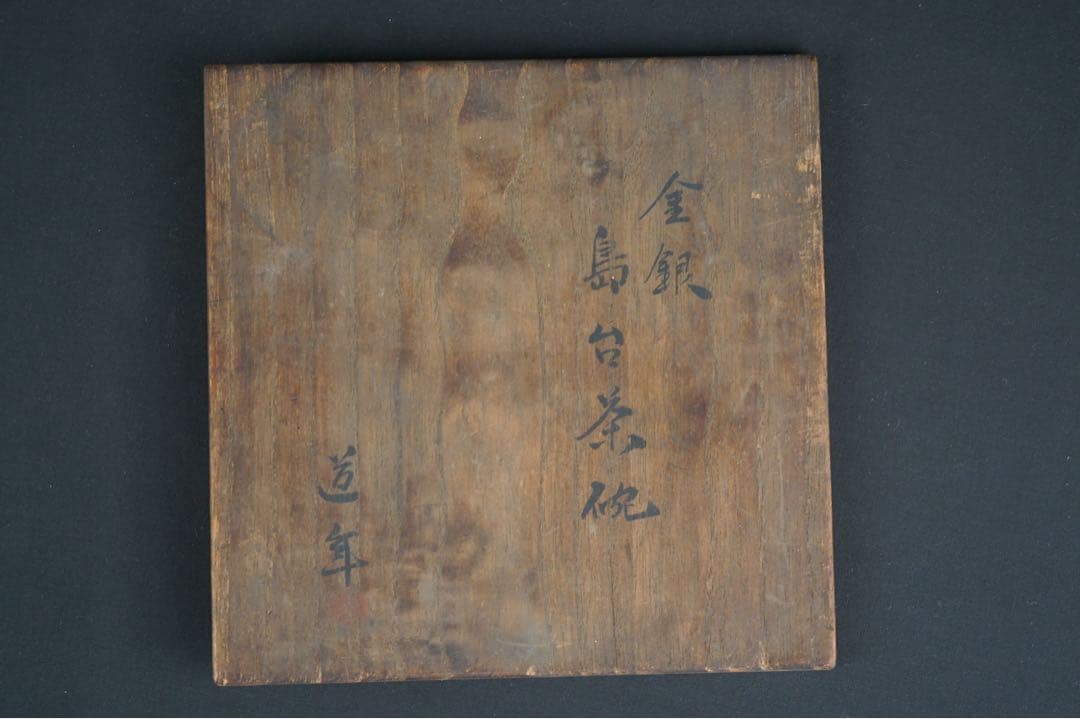 金銀
島台茶碗
道年